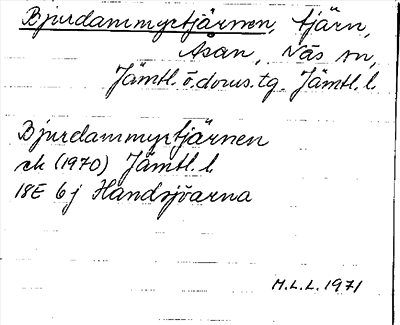 Bjurdammyrtjärnen, tjärn,
Åsan, Näs sn,
Jämtl. ö. doms. tg. Jämtl. l.
Bjurdammyrtjärnen
ek (1970) Jämtl. l
18E 6j Handsjöarna
M.L.L. 1971